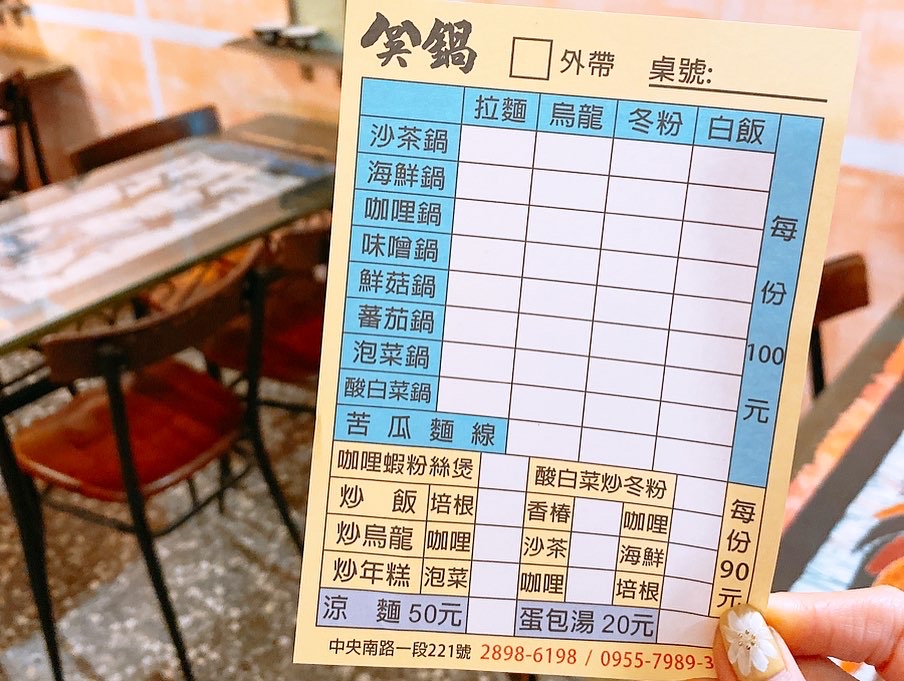 笑鍋 外帶 桌號:
拉麵 烏龍 冬粉 白飯
沙茶鍋
海鮮鍋
咖哩鍋
味噌鍋
鮮菇鍋
蕃茄鍋
泡菜鍋
酸白菜鍋
苦瓜麵線
每份100元
咖哩蝦粉絲煲 酸白菜炒冬粉
炒飯 培根 香椿 咖哩
炒烏龍 咖哩 沙茶 海鮮
炒年糕 泡菜 咖哩 培根
每份90元
涼麵50元 蛋包湯20元
中央南路一段221號 2898-6198 / 0955-7989-3